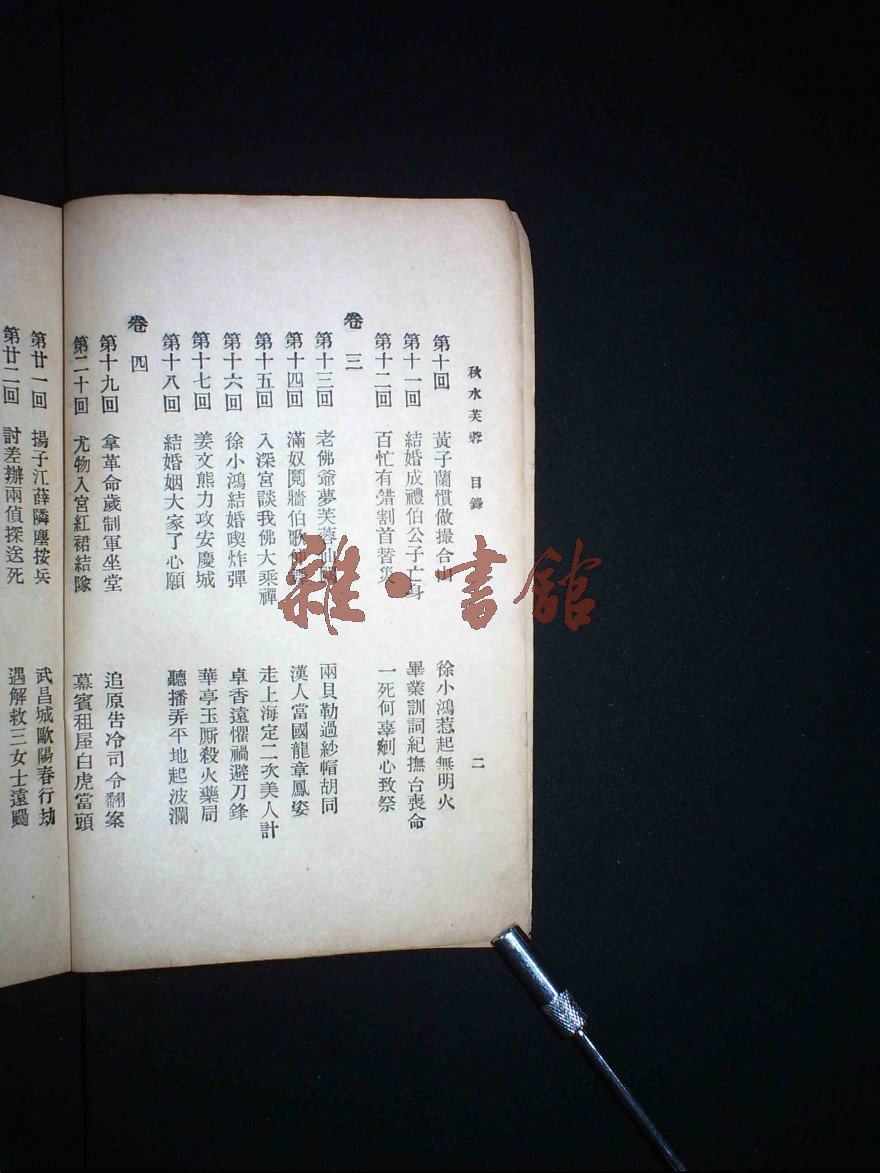 秋水芙蓉 目錄 二
第十回 黃子蘭慣做撮合山 徐小鴻惹起無明火
第十一回 結婚成禮伯公子亡身 畢業訓詞紀撫台喪命
第十二回 百忙有錯割首替災 一死何辜剜心致祭
卷三
第十三回 老佛爺夢芙蓉仙 兩貝勒過紗帽胡同
第十四回 滿奴鬩牆伯歌 漢人當國龍章鳳姿
第十五回 入深宮談我佛大乘禪 走上海定二次美人計
第十六回 徐小鴻結婚喫炸彈 卓香遠懼禍避刀鋒
第十七回 姜文熊力攻安慶城 華亭玉厮殺火藥局
第十八回 結婚姻大家了心願 聽播弄平地起波瀾
卷四
第十九回 拿革命歲制軍坐堂 追原告冷司令翻案
第二十回 尤物入宮紅裙結隊 幕賓租屋白虎當頭
第廿一回 揚子江薛隣塵按兵 武昌城歐陽春行劫
第廿二回 討差辦兩偵探送死 遇解救三女士遠颺
雜·書館